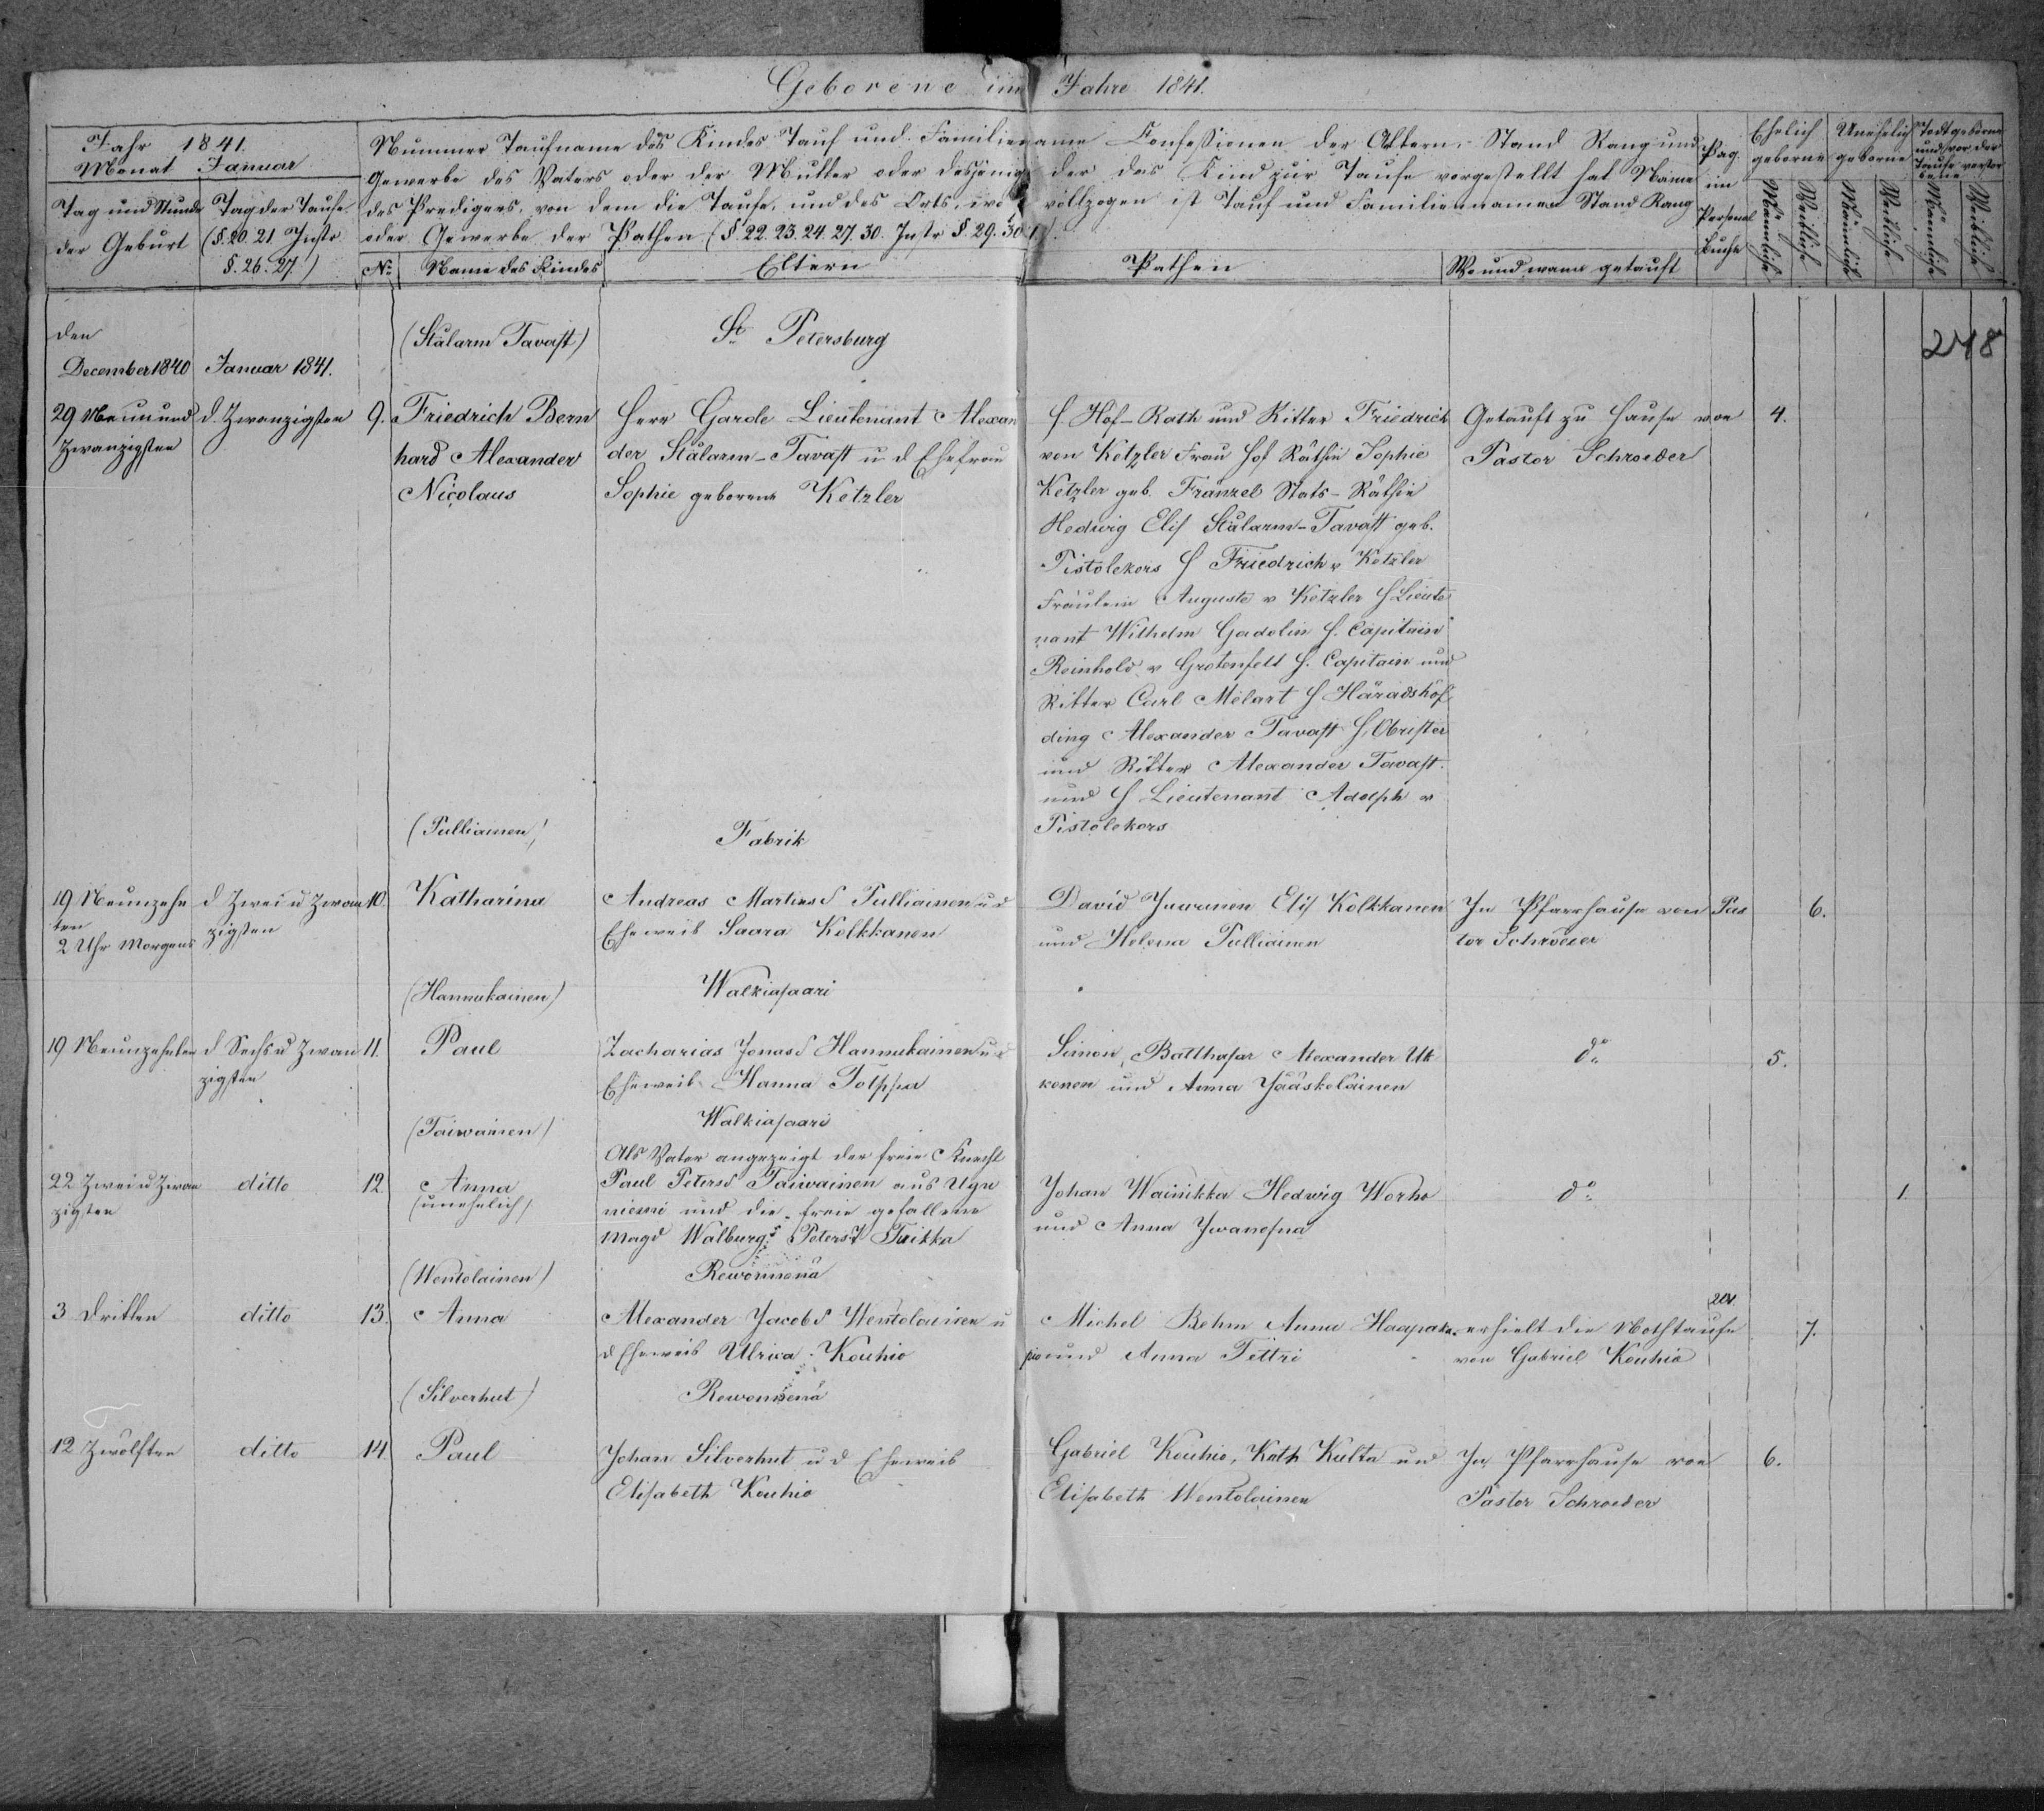 Geborene im Jahre 1841.
Jahr 1841.
Monat Januar
Tag und Stunde der Geburt
Tag der Taufe (§. 20. 21. Instr §. 26. 27.)
Nummer Taufname des Kindes Tauf und Familienname Confessionen der Ältern, Stand Rang und
Gewerbe des Vaters oder der Mutter oder desjenigen der das Kind zur Taufe vorgestellt hat Name
des Predigers, von dem die Taufe, und des Orts, wo sie vollzogen ist Tauf und Familiennamen Stand Rang
oder Gewerbe der Pathen (§. 22. 23. 24. 27. 30. Instr §. 29. 30
No Name des Kindes Eltern Pathen Wo und wann getauft
Pag. im Personal Buche
Ehelich geborne Unehelich geborne Todtgeborne und vor der Taufe verstorbene
Männliche Weibliche Männliche Weibliche Männliche Weibliche
248
den
December 1840 Januar 1841.
(Stålarm Tavast) St Petersburg
29 Neunund d. Zwanzigsten 9. Friedrich Bern Herr Garde Lieutenant Alexan H. Hof-Rath und Ritter Friedrich Getauft zu Hause von 4.
zwanzigsten hard Alexander der Stålarm-Tavast u d Ehefrau von Ketzler Frau Hof Räthin Sophie Pastor Schroeder
Nicolaus Sophie geborene Ketzler Ketzler geb. Fränzel Stats-Räthin
Hedwig Elis Stålarm-Tavast geb.
Pistolekors H Friedrich v Ketzler
Fräulein Auguste v Ketzler H Lieute
nant Wilhelm Gadolin H. Capitain
Reinhold v Grotenfelt H. Capitain und
Ritter Carl Melart H Häradshöf
ding Alexander Tavast H. Obrister
und Ritter Alexander Tavast
und H Lieutenant Adolph v
Pistolekors
(Pulliainen) Fabrik
19 Neunzehn d Zwei u Zwan 10. Katharina Andreas Martinsd Pulliainen u d David Juvanen Elis Kolkkanen Im Pfarrhause von Pas 6.
ten zigsten Eheweib Saara Kolkkanen und Helena Pulliainen tor Schroeder
2 Uhr Morgens
(Hannukainen) Walkiasaari
19 Neunzehnten d Sechs u Zwan 11. Paul Zacharias Jonasd Hannukainen u d Simon, Balthasar Alexander Uk do 5.
zigsten Eheweib Hanna Tolppa konen und Anna Jääskeläinen
(Taiwainen) Walkiasaari
Als Vater angezeigt der freie Knecht
22 Zwei u Zwan ditto 12. Anna Paul Petersd Taiwainen aus Ugu Johan Wainikka Hedwig Worho do 1.
zigsten (unehelich) niemi und die freie gefallene und Anna Iwanofna
Magd Walburg Petersd Tuikka
(Wentolainen) Rewonnenä
201.
3 Dritten ditto 13. Anna Alexander Jacobd Wentolainen u Michel Behm Anna Haapaka erhielt die Nothtaufe 7.
d Eheweib Ulrica Kouhio und Anna Tettri von Gabriel Kouhia
(Silverhut) Rewonnenä
12 Zwölften ditto 14. Paul Johan Silverhut u d Eheweib Gabriel Kouhio, Kath Kulta und Im Pfarrhause von 6.
Elisabeth Kouhio Elisabeth Wentolainen Pastor Schroeder